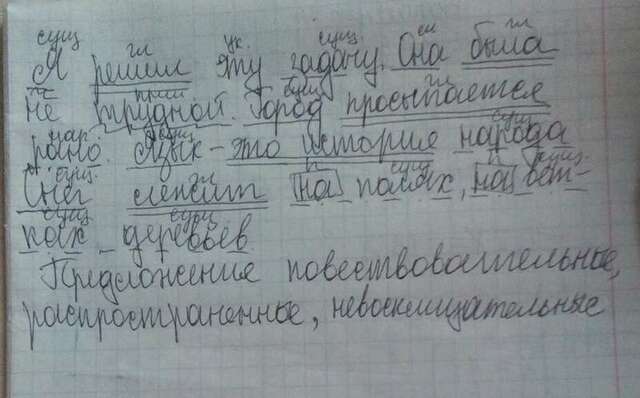 сущ гл ук. сущ. сл гл
Я решил эту задачу. Она была
не трудной. Город просыпается
нар.
рано. Язык - это история народа
сущ. гл п сущ п сущ.
Снег лежит на полях, на вет-
сущ сущ
ках деревьев
Предложение повествовательные,
распространенные, невосклицательные